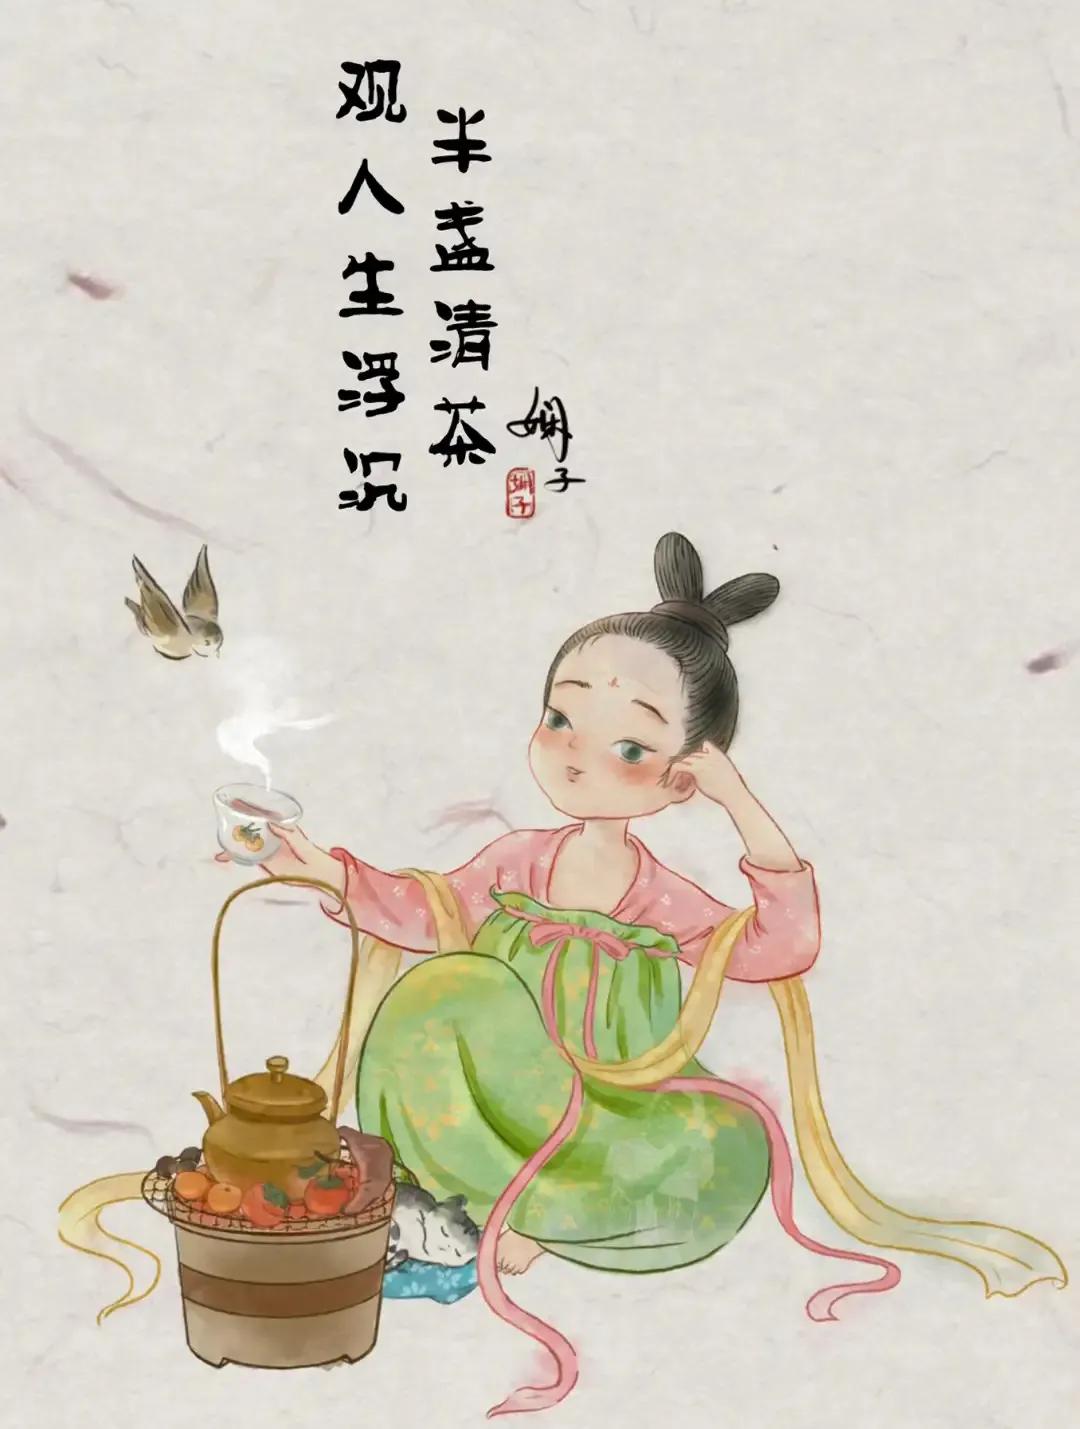 半盏清茶
观人生浮沉
娴子
娴子